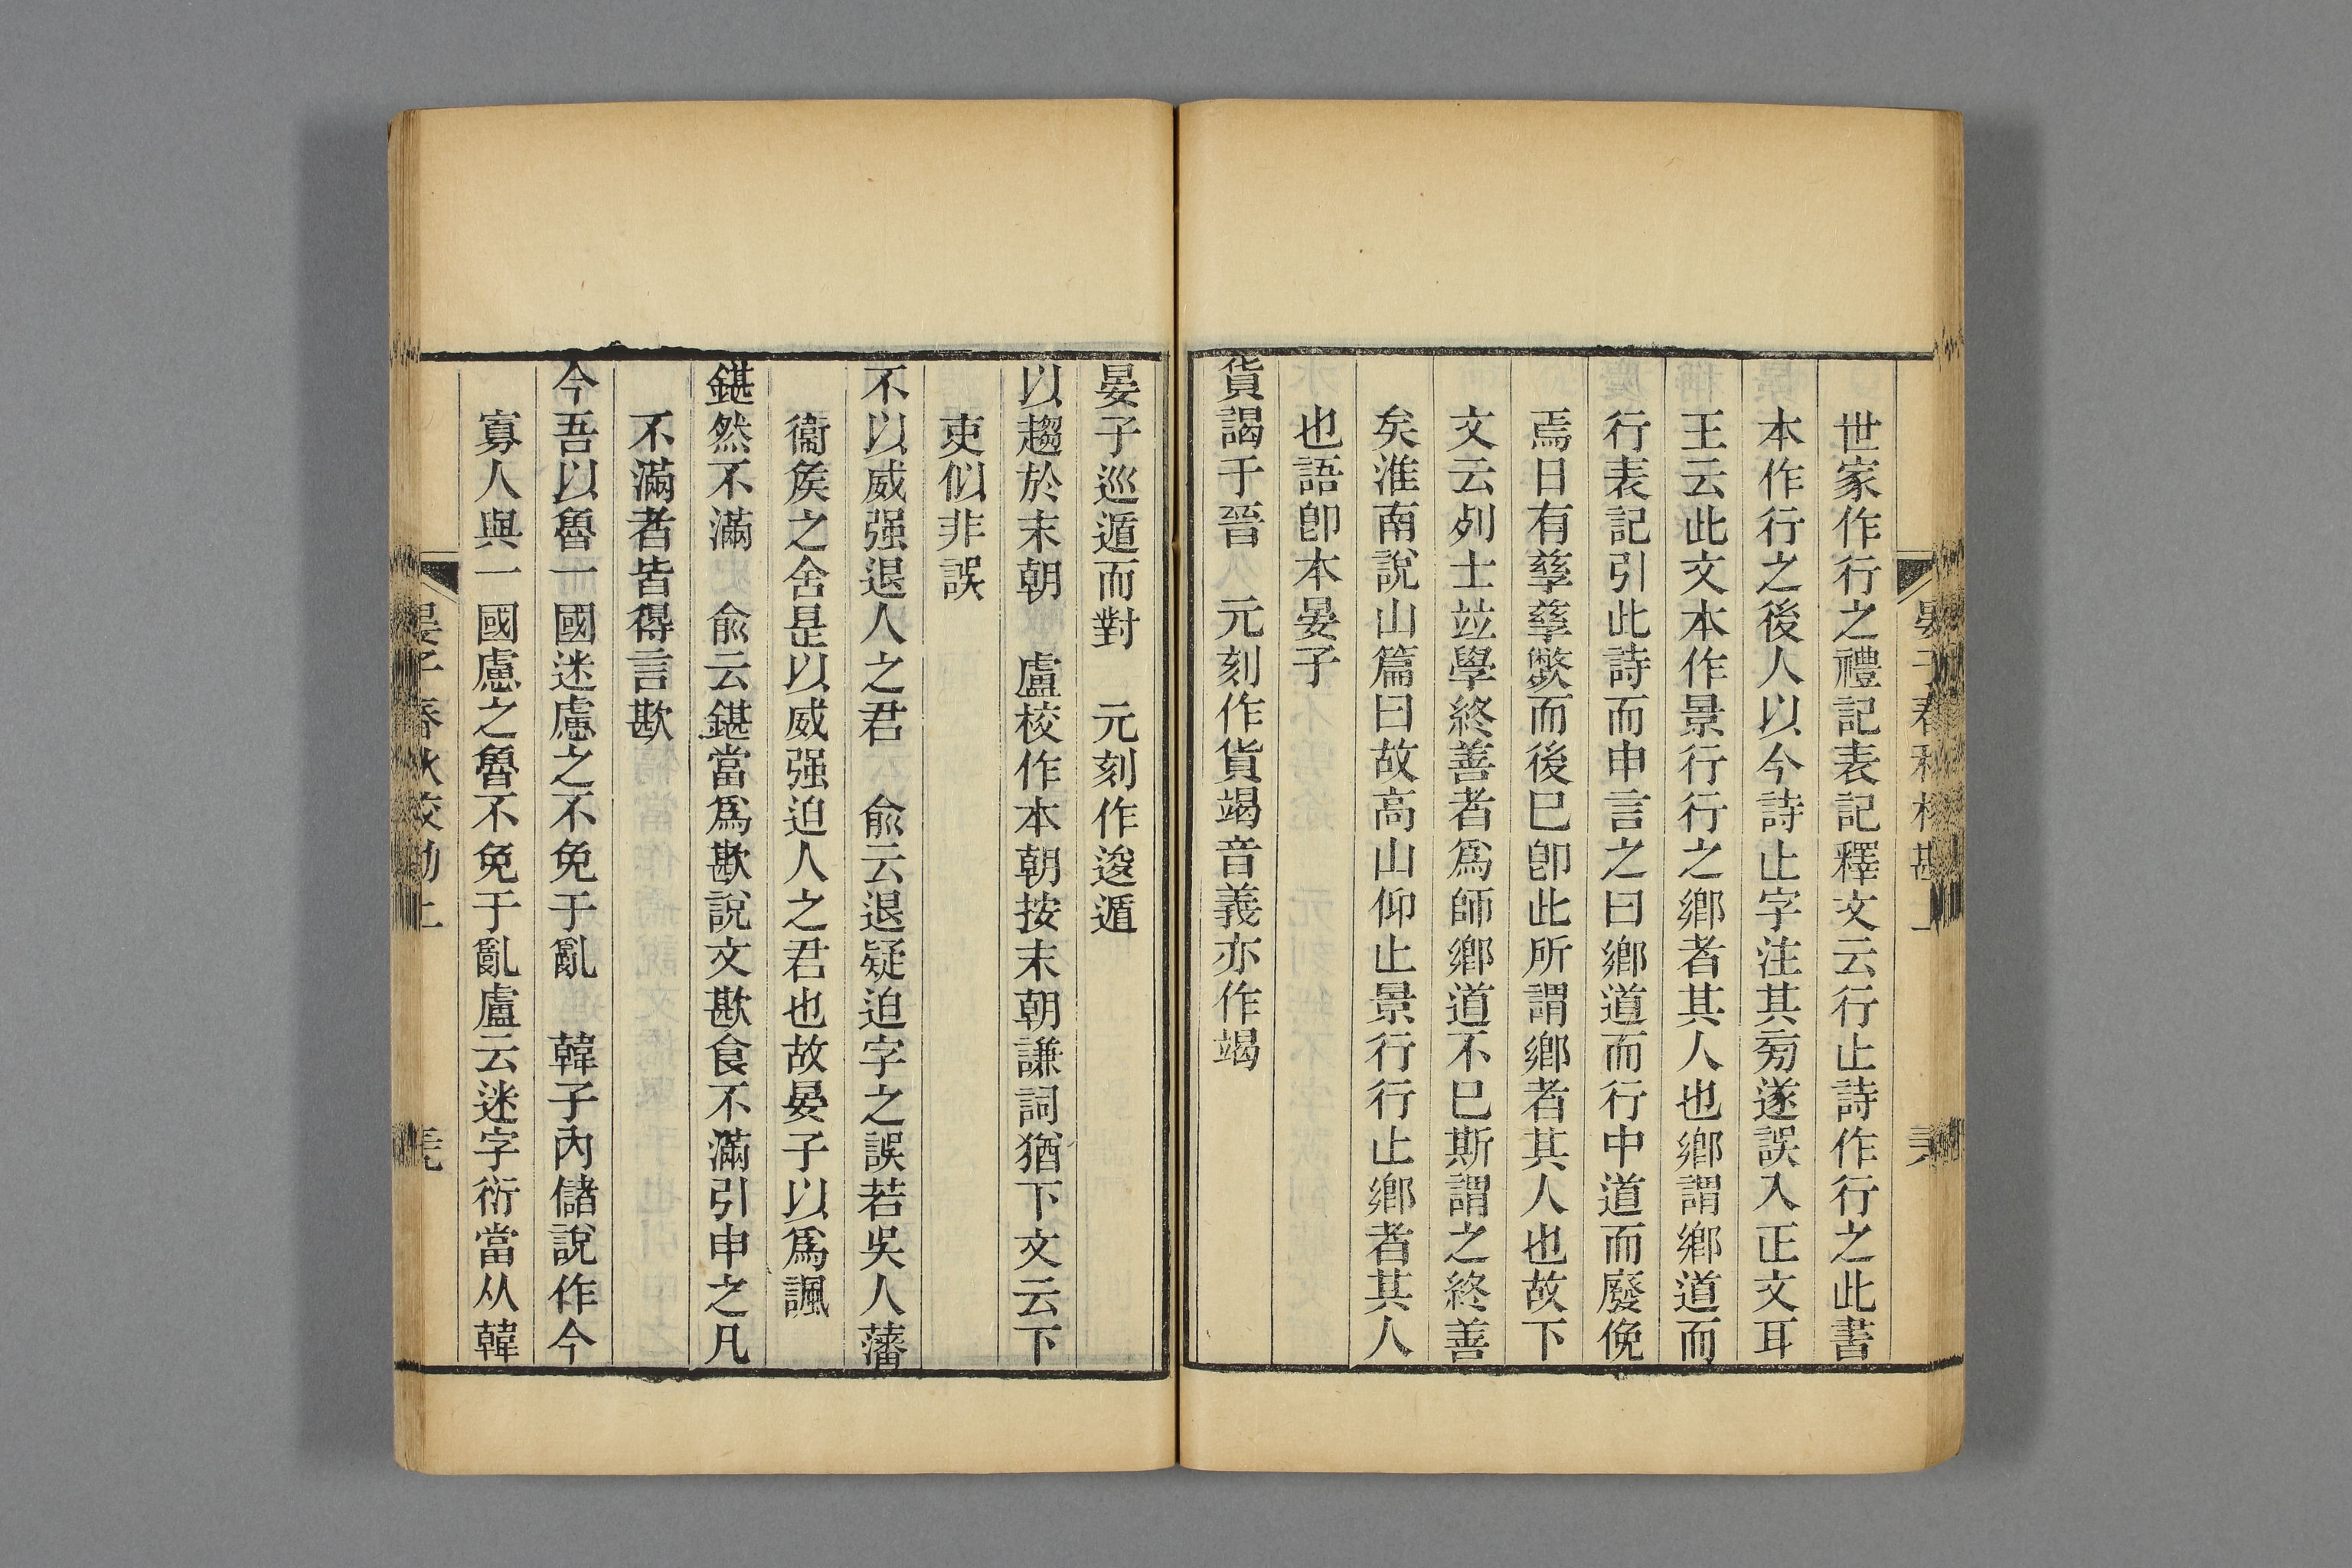 世家作行之禮記表記釋文云行止詩作行之此書
本作行之後人以今詩止字注其㫄遂誤入正文耳
王云此文本作景行行之鄉者其人也鄉謂鄉道而
行表記引此詩而申言之曰鄉道而行中道而廢俛
焉日有孳孳斃而後已卽此所謂鄉者其人也故下
文云列士竝學終善者爲師鄉道不已斯謂之終善
矣淮南說山篇曰故高山仰止景行行止鄉者其人
也語卽本晏子
貨謁于晉　元刻作貨竭音義亦作竭
晏子巡遁而對　元刻作逡遁
以趨於末朝　盧校作本朝按末朝謙詞猶下文云下
吏似非誤
不以威强退人之君　兪云退疑迫字之誤若吳人藩
衞矦之舍是以威强迫人之君也故晏子以爲諷
鍖然不滿　兪云鍖當爲歁說文歁食不滿引申之凡
不滿者皆得言歁
今吾以魯一國迷慮之不免于亂　韓子內儲說作今
寡人與一國慮之魯不免于亂盧云迷字衍當从韓
晏子春秋校勘上